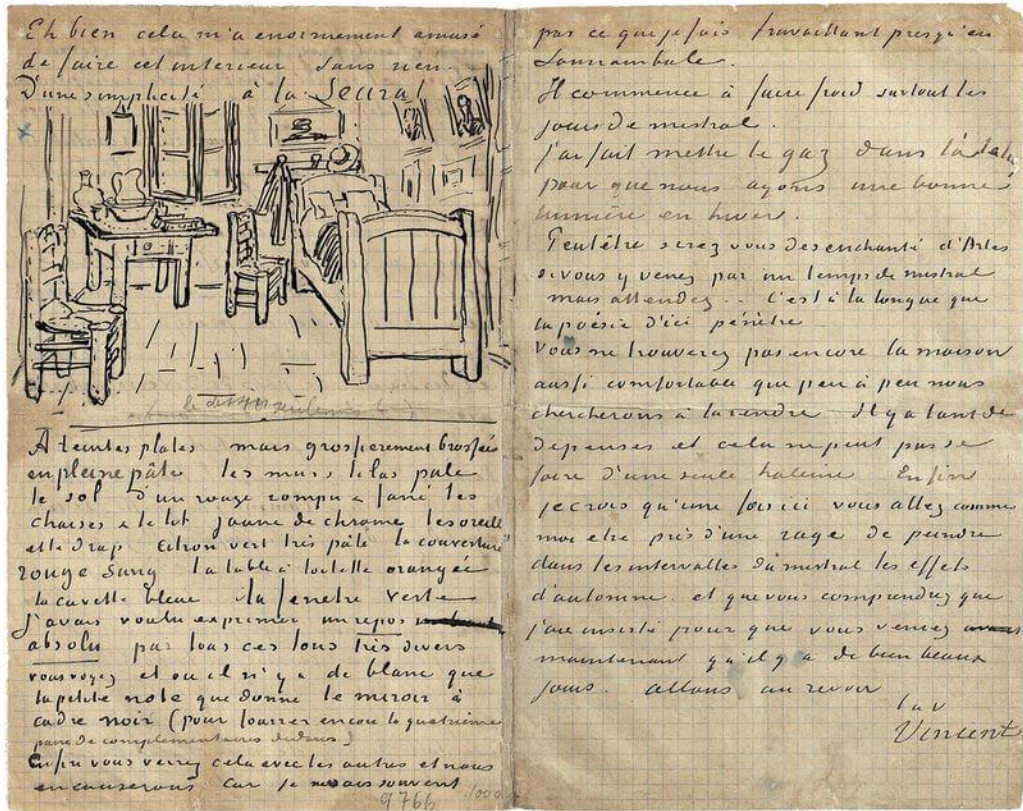 Eh bien cela m'a enormement amusé
de faire cet interieur sans rien.
D'une simplicité à la Seurat
à teintes plates mais grossierement brossées
en pleine pâte les murs lilas pale
le sol d'un rouge rompu & fané les
chaises & le lit jaune de chrome les oreillers
et le drap citron vert très pâle la couverture
rouge sang la table à toilette orangée
la cuvette bleue la fenetre verte
j'avais voulu exprimer un repos
absolu par tous ces tons très divers
vous voyez et où il n'y a de blanc que
la petite note que donne le miroir à
cadre noir (pour fourrer encore la quatrième
paire de complementaires dedans)
Enfin vous verrez cela avec les autres et nous
en causerons car je ne sais souvent
9766
1000
pas ce que je fais travaillant presqu'en
somnambule.
Il commence à faire froid surtout les
jours de mistral.
j'ai fait mettre le gaz dans l'atelier
pour que nous ayons une bonne
lumière en hiver.
Peutêtre serez vous desenchanté d'Arles
si vous y venez par un temps de mistral
mais attendez.. C'est à la longue que
la poésie d'ici pénètre
vous ne trouverez pas encore la maison
aussi comfortable que peu à peu nous
chercherons à la rendre Il y a tant de
depenses et cela ne peut pas se
faire d'une seule haleine Enfin
je crois qu'une fois ici vous allez comme
moi etre pris d'une rage de peindre
dans les intervalles du mistral les effets
d'automne. et que vous comprendrez que
j'aie insisté pour que vous veniez
maintenant qu'il y a de bien beaux
jours. allons au revoir
t. à v.
Vincent